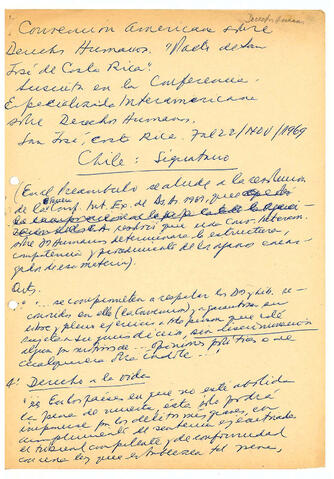 Derechos Humanos
Convención Americana sobre
Derechos Humanos. "Pacto de San
José de Costa Rica".
Suscrita en la Conferencia
Especializada Interamericana
sobre Derechos Humanos.
San José, Costa Rica. 7 al 22/Nov/1969
Chile: Signatario
(En el Preámbulo se alude a la
de la Conf. Int. Ext. de Bs. As. 1967, que
resolvió que una Conv. Interam.
sobre D. Humanos determinara la estructura,
competencia y procedimiento de los órganos encar-
gados de esa materia).
Art.
"... se comprometen a respetar los D. y Lib. re-
conocidos en ella (la Convención) y a garantizar su
libre y pleno ejercicio a toda persona que esté
sujeta a su jurisdicción, sin discriminación
alguna por motivos de ... opiniones políticas o de
cualquiera otra índole ..."
4: Derecho a la vida
"2: En los países en que no esté abolida
la pena de muerte ésta sólo podrá
imponerse por los delitos más graves, en
cumplimiento de sentencia ejecutoriada
de tribunal competente y de conformidad
con una ley que establezca tal pena,